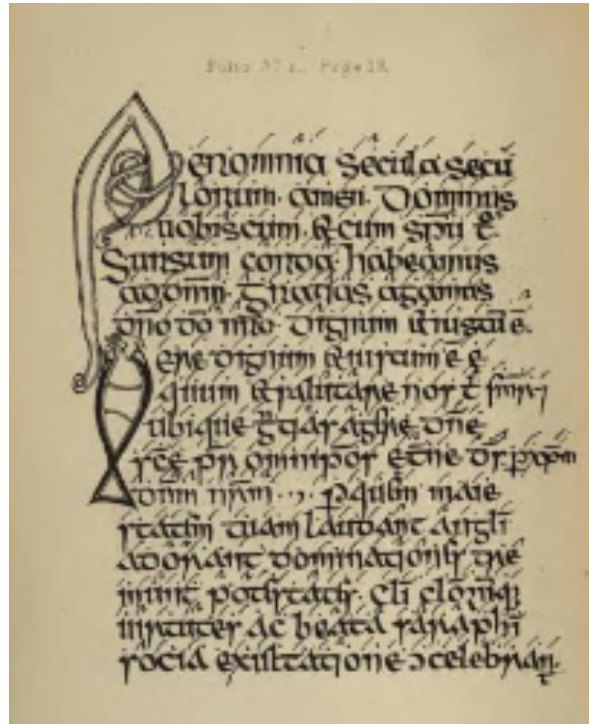 Folio 37 r. Page 18.
Per omnia secula secu
lorum. amen. Dominus
uobiscum. & cum spu t̄
Sursum corda. habeamus
ad dom̄. Gratias agamus
dn̄o dō n̄ro. Dignum & iustū ē.
Uere dignum & iustum ē
quum & salutare nos t̄
ubique gr̄as agere. dn̄e
sc̄e pr̄ omnipo᷒ et̄ne d᷒. p xp̄m
dn̄m nr̄m. p quem maie
statem tuam laudant angli
adorant dominationes tre
munt potestates. cli clorūq;
uirtutes ac beata saraphi
socia exultatione ɔcelebrant.